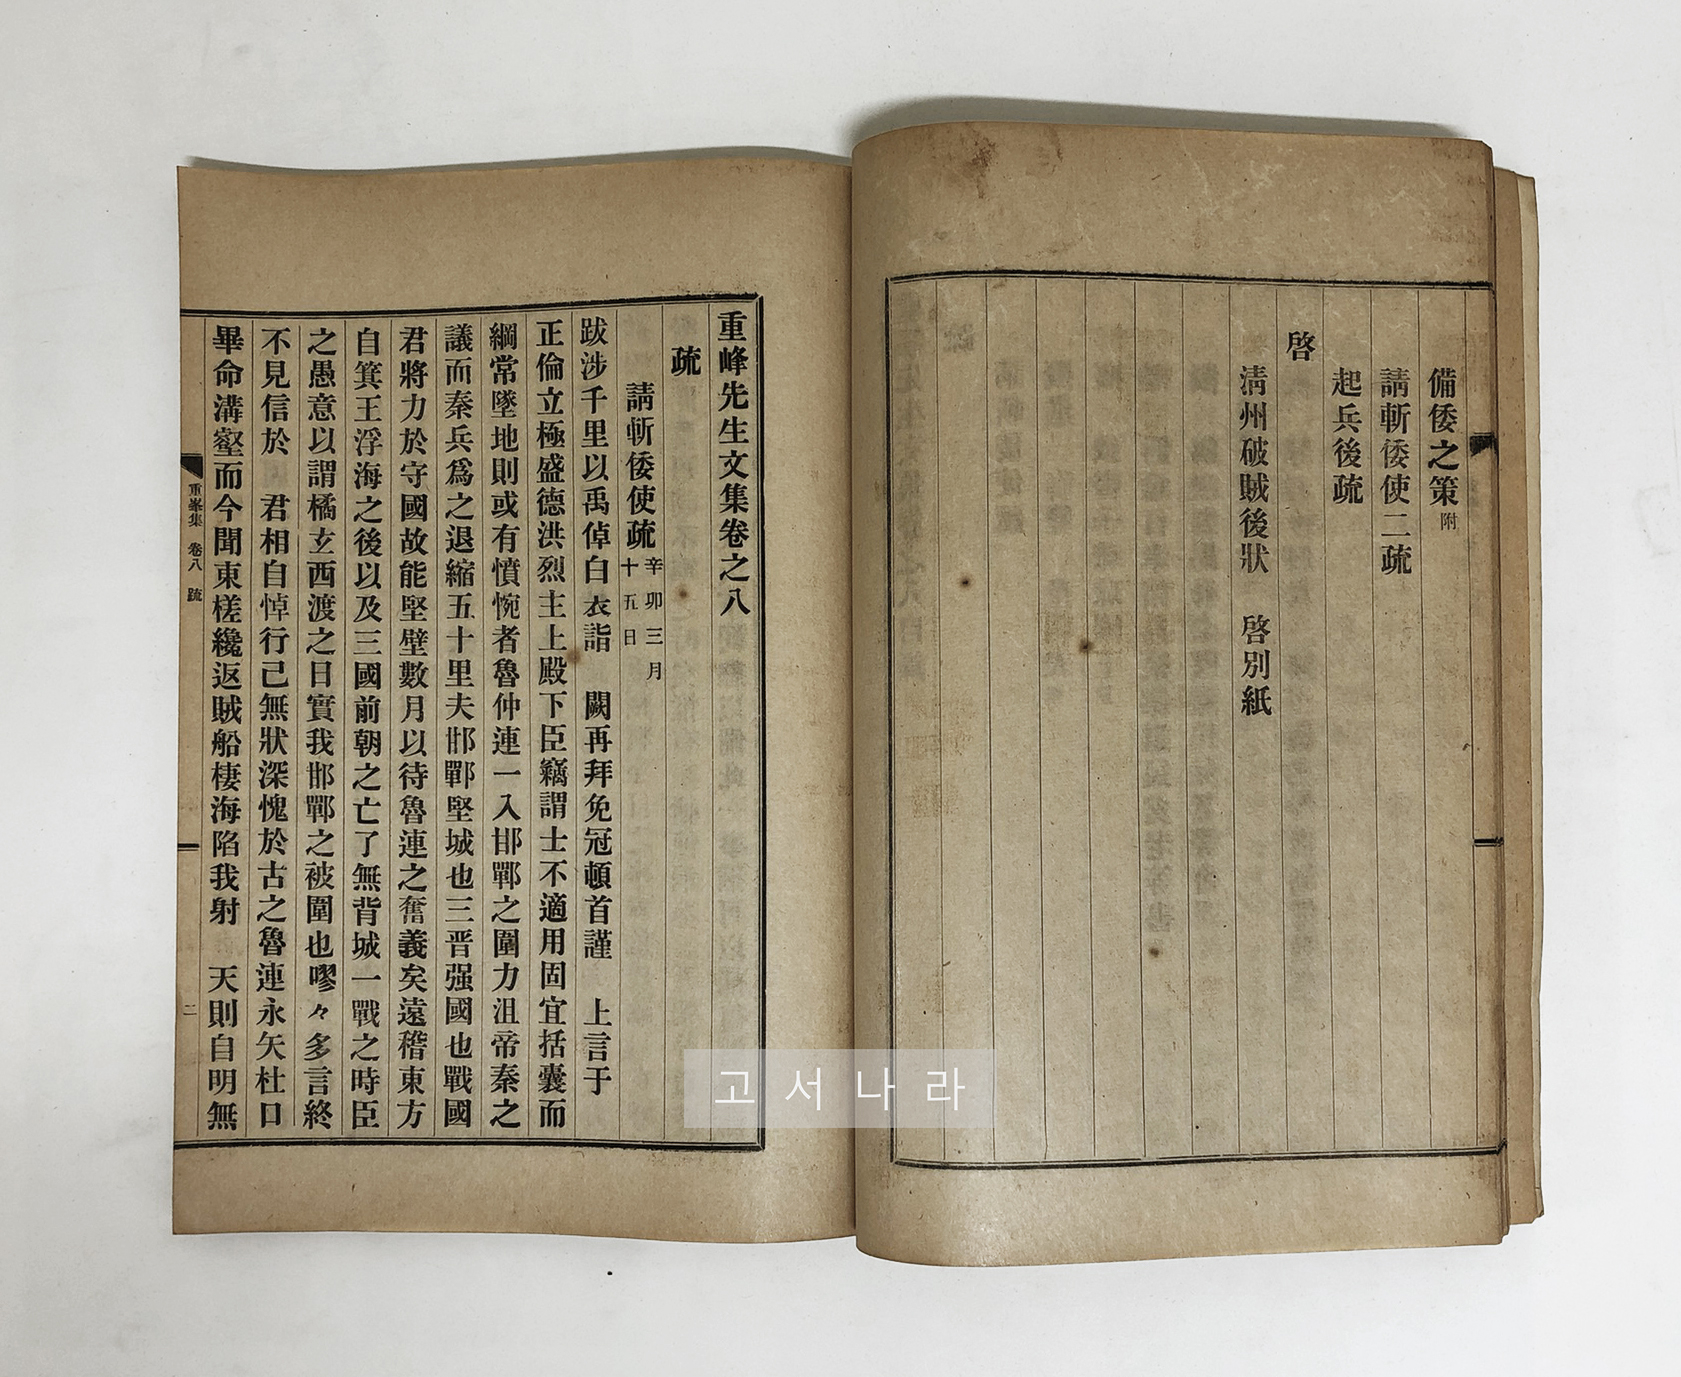 備倭之策附
請斬倭使二疏
起兵後疏
啓
淸州破賊後狀　啓別紙
重峰先生文集卷之八
疏
請斬倭使疏辛卯三月十五日
跋涉千里以禹倬白衣詣　闕再拜免冠頓首謹　上言于
正倫立極盛德洪烈主上殿下臣竊謂士不適用固宜括囊而
綱常墜地則或有憤惋者魯仲連一入邯鄲之圍力沮帝秦之
議而秦兵爲之退縮五十里夫邯鄲堅城也三晋强國也戰國
君將力於守國故能堅壁數月以待魯連之奮義矣遠稽東方
自箕王浮海之後以及三國前朝之亡了無背城一戰之時臣
之愚意以謂橘玄西渡之日實我邯鄲之被圍也嘐々多言終
不見信於　君相自悼行己無狀深愧於古之魯連永矢杜口
畢命溝壑而今聞東槎纔返賊船棲海陷我射　天則自明無
重峯集　卷八　疏
二
고서나라